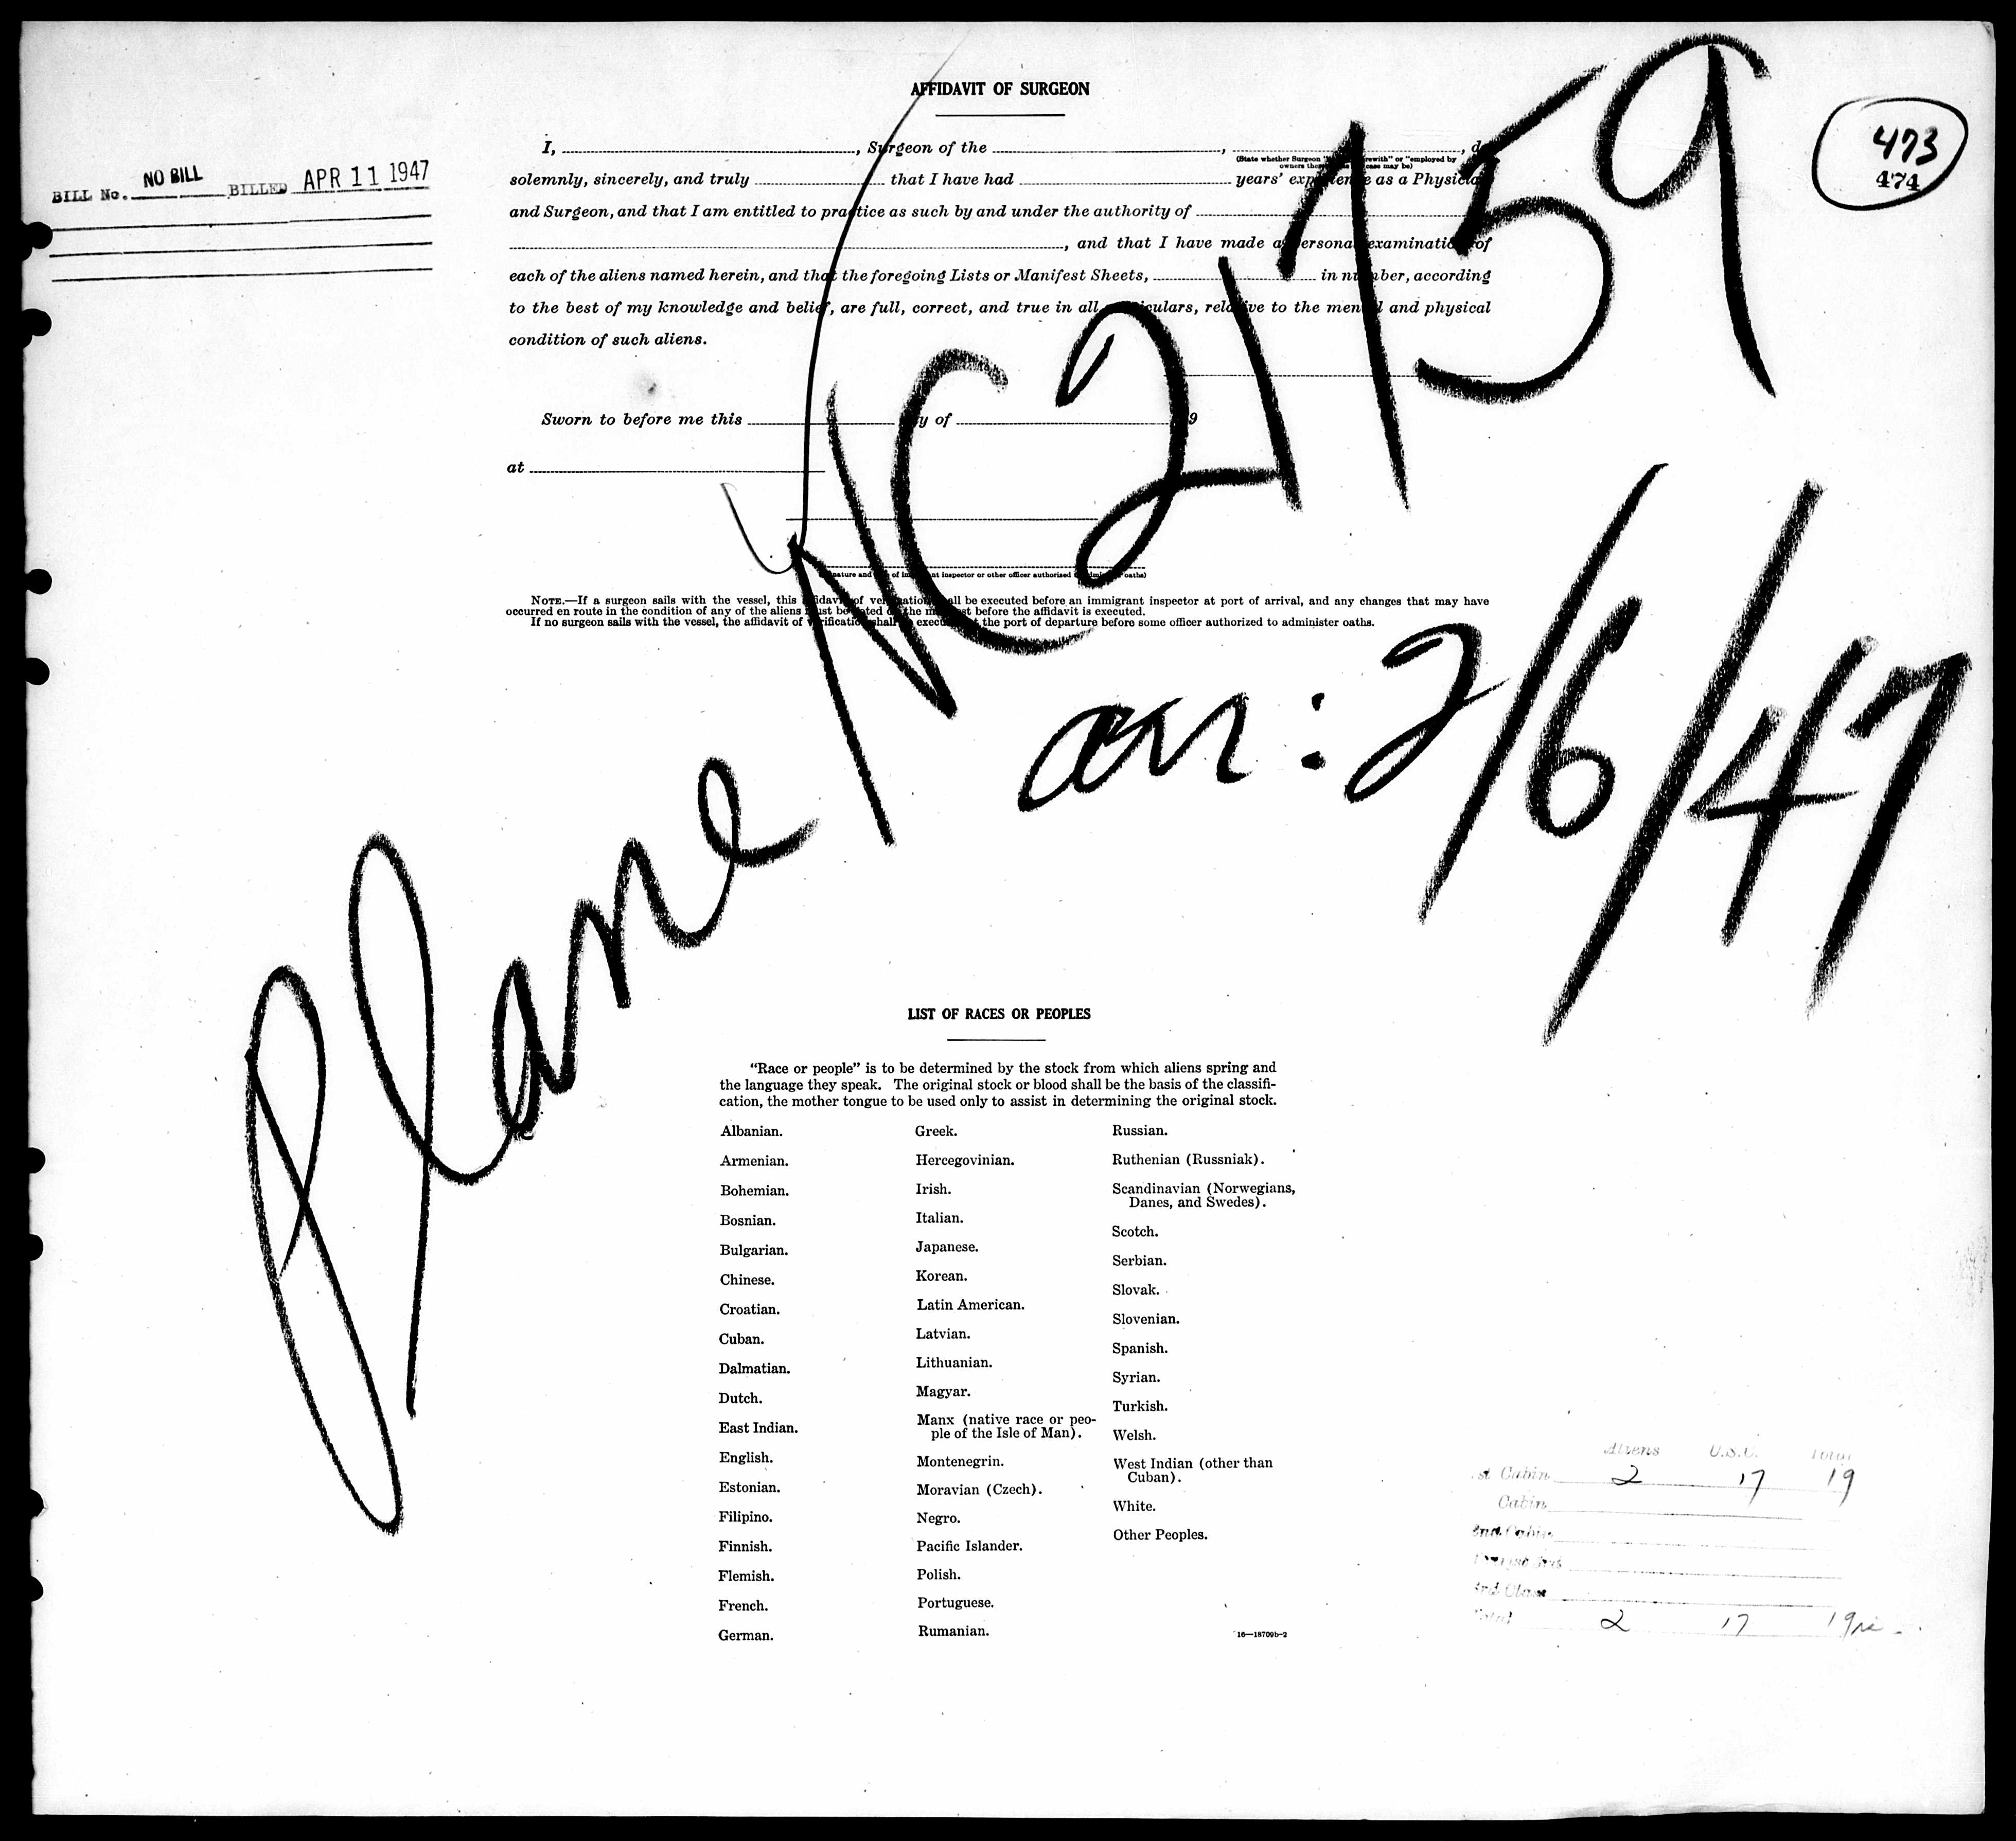 AFFIDAVIT OF SURGEON
I, , Surgeon of the , , d
(State whether Surgeon or "employed by
owners case may be)
solemnly, sincerely, and truly that I have had years' experience as a Physician
and Surgeon, and that I am entitled to practice as such by and under the authority of
, and that I have made a personal examination of
each of the aliens named herein, and that the foregoing Lists or Manifest Sheets, in number, according
to the best of my knowledge and belief, are full, correct, and true in all particulars, relative to the mental and physical
condition of such aliens.
BILL No. NO BILL BILLED APR 11 1947
473
474
Sworn to before me this day of 9
at
inspector or other officer authorized oaths)
NOTE.—If a surgeon sails with the vessel, this affidavit of verification shall be executed before an immigrant inspector at port of arrival, and any changes that may have
occurred en route in the condition of any of the aliens must be noted on the manifest before the affidavit is executed.
If no surgeon sails with the vessel, the affidavit of verification shall be executed at the port of departure before some officer authorized to administer oaths.
Plane NC21759
arr: 2/6/47
LIST OF RACES OR PEOPLES
"Race or people" is to be determined by the stock from which aliens spring and
the language they speak. The original stock or blood shall be the basis of the classifi-
cation, the mother tongue to be used only to assist in determining the original stock.
Albanian.
Armenian.
Bohemian.
Bosnian.
Bulgarian.
Chinese.
Croatian.
Cuban.
Dalmatian.
Dutch.
East Indian.
English.
Estonian.
Filipino.
Finnish.
Flemish.
French.
German.
Greek.
Hercegovinian.
Irish.
Italian.
Japanese.
Korean.
Latin American.
Latvian.
Lithuanian.
Magyar.
Manx (native race or peo-
ple of the Isle of Man).
Montenegrin.
Moravian (Czech).
Negro.
Pacific Islander.
Polish.
Portuguese.
Rumanian.
Russian.
Ruthenian (Russniak).
Scandinavian (Norwegians,
Danes, and Swedes).
Scotch.
Serbian.
Slovak.
Slovenian.
Spanish.
Syrian.
Turkish.
Welsh.
West Indian (other than
Cuban).
White.
Other Peoples.
16—18709b-2
Aliens U.S.C. Total
st Cabin 2 17 19
Cabin
Total 2 17 19